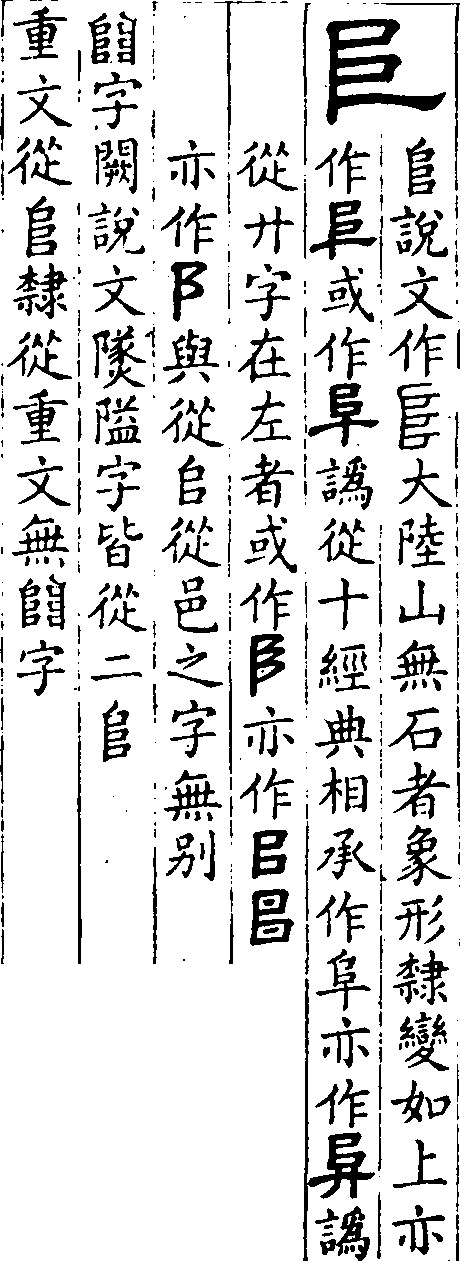 𨸏
𨸏說文作𨸏大陸山無石者象形隸變如上亦
作𨸏或作阜譌從十經典相承作阜亦作譌
從廾字在左者或作阝亦作㠯昌
亦作阝與從㠯從邑之字無别
𨺅字闕說文隘字皆從二𨸏
重文從𨸏隸從重文無𨺅字